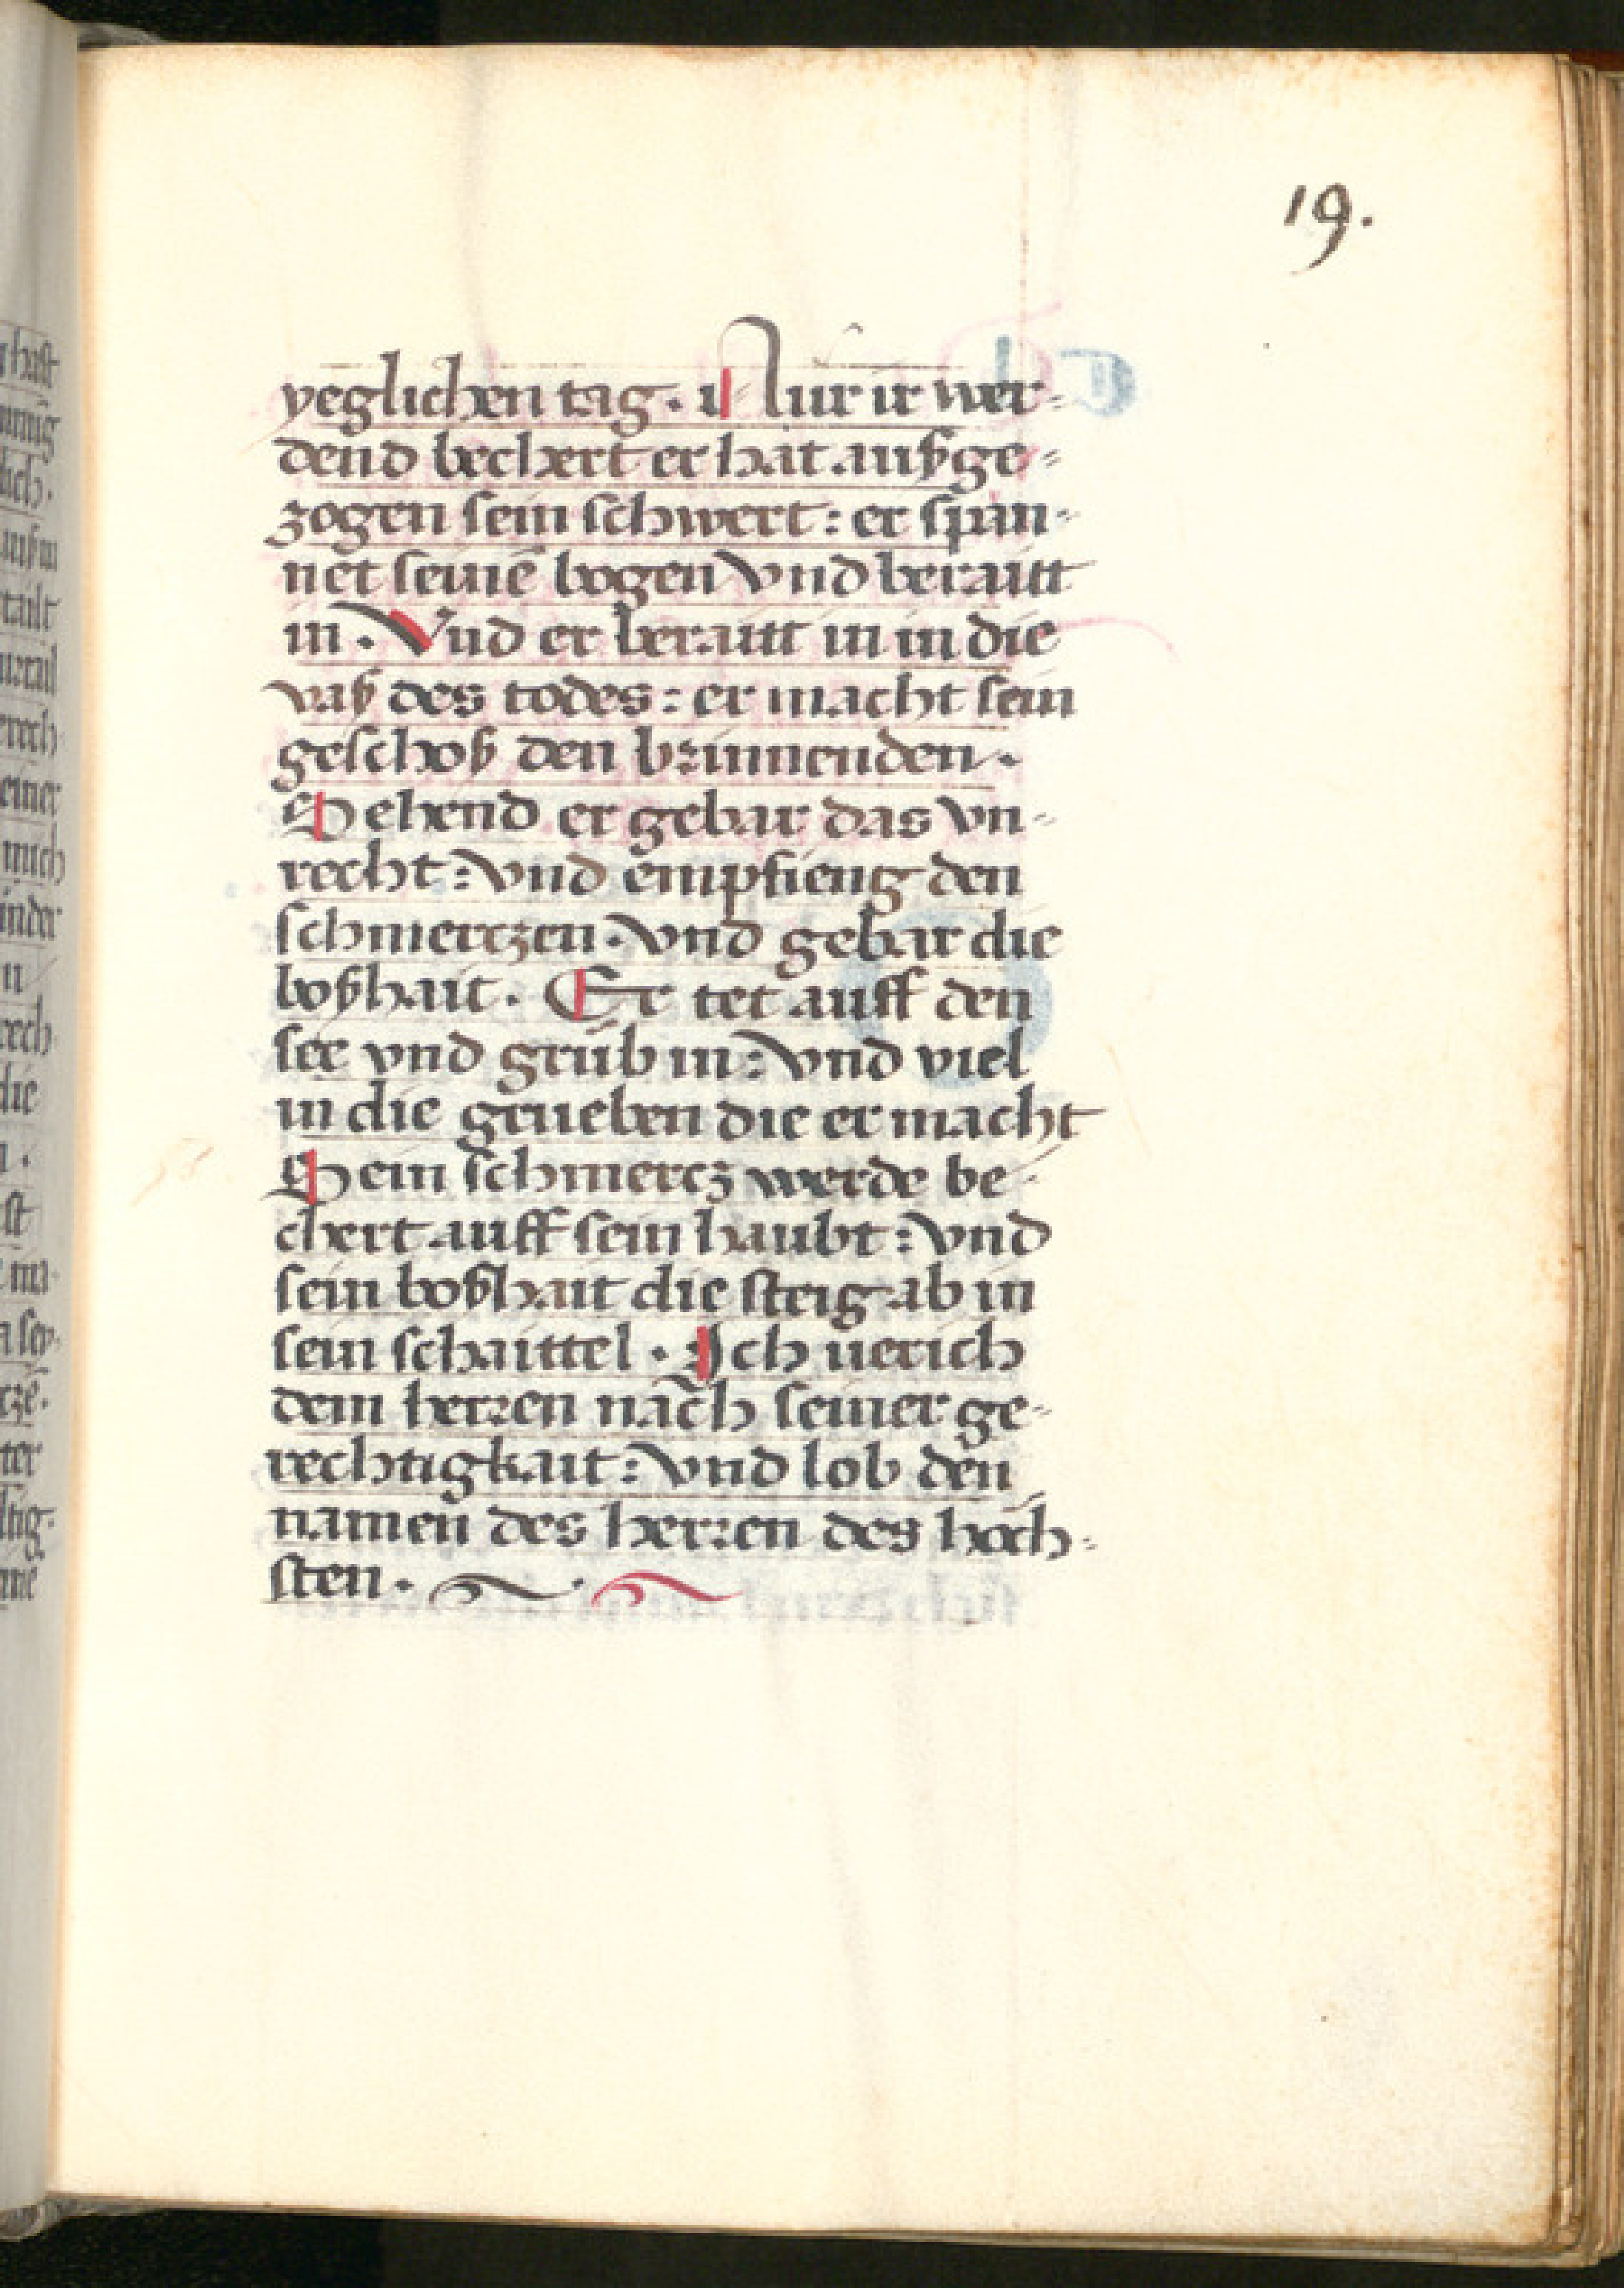 19.
yeglichen tag. Nur ir wer=
dend bechert er hat außge=
zogen sein schwert: er span=
net seinē bogen vnd beraitt
in. Vnd er beraitt in in die
vaß des todes: er macht sein
geschoß den brinnenden.
Sehend er gebar das vn=
recht: vnd empfieng den
schmerczen. vnd gebar die
boßhait. Er tet auff den
see vnd grůb in: vnd viel
in die grueben die er macht
Sein schmercz werde be=
chert auff sein haubt: vnd
sein boßhait die steig ab in
sein schaittel. Ich uerich
dem herren nach seiner ge=
rechtigkait: vnd lob den
namen des herren des hoch=
sten.